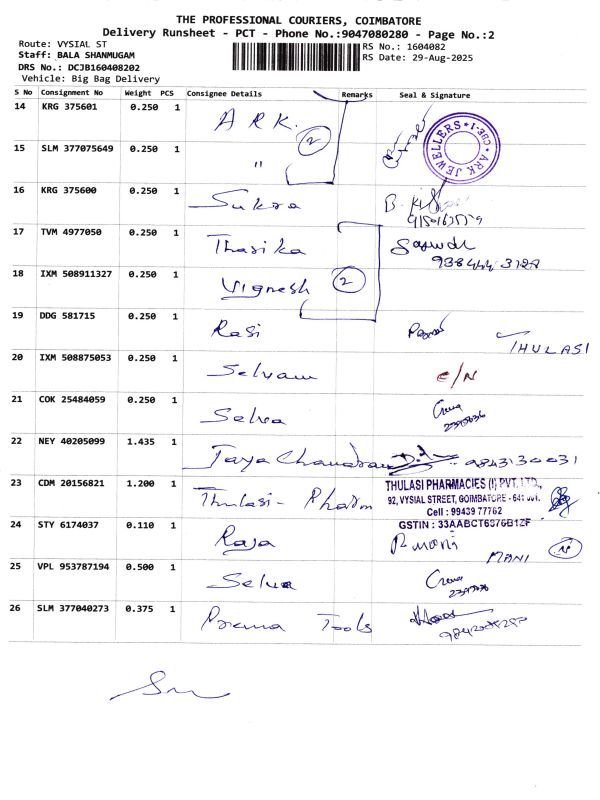 THE PROFESSIONAL COURIERS, COIMBATORE
Delivery Runsheet - PCT - Phone No.:9047080280 - Page No.:2
Route: VYSIAL ST
RS No.: 1604082
Staff: BALA SHANMUGAM
RS Date: 29-Aug-2025
DRS No.: DCJB160408202
Vehicle: Big Bag Delivery
S No Consignment No Weight PCS Consignee Details Remarks Seal & Signature
14 KRG 375601 0.250 1 A R K. 2
ARK JEWELLERS * CBE-1 *
15 SLM 377075649 0.250 1 "
16 KRG 375600 0.250 1 Sukra
17 TVM 4977050 0.250 1 Thasika
18 IXM 508911327 0.250 1 Vignesh 2
19 DDG 581715 0.250 1 Rasi THULASI
20 IXM 508875053 0.250 1 Selvam C/N
21 COK 25484059 0.250 1 Selva
22 NEY 40205099 1.435 1 Jaya Chandran
23 CDM 20156821 1.200 1 Thulasi- Pharm
THULASI PHARMACIES (I) PVT. LTD.,
92, VYSIAL STREET, COIMBATORE - 641 001.
Cell : 99439 77762
GSTIN : 33AABCT6376B1ZF
24 STY 6174037 0.110 1 Raja R mani MANI
25 VPL 953787194 0.500 1 Selva
26 SLM 377040273 0.375 1 Prema Tools